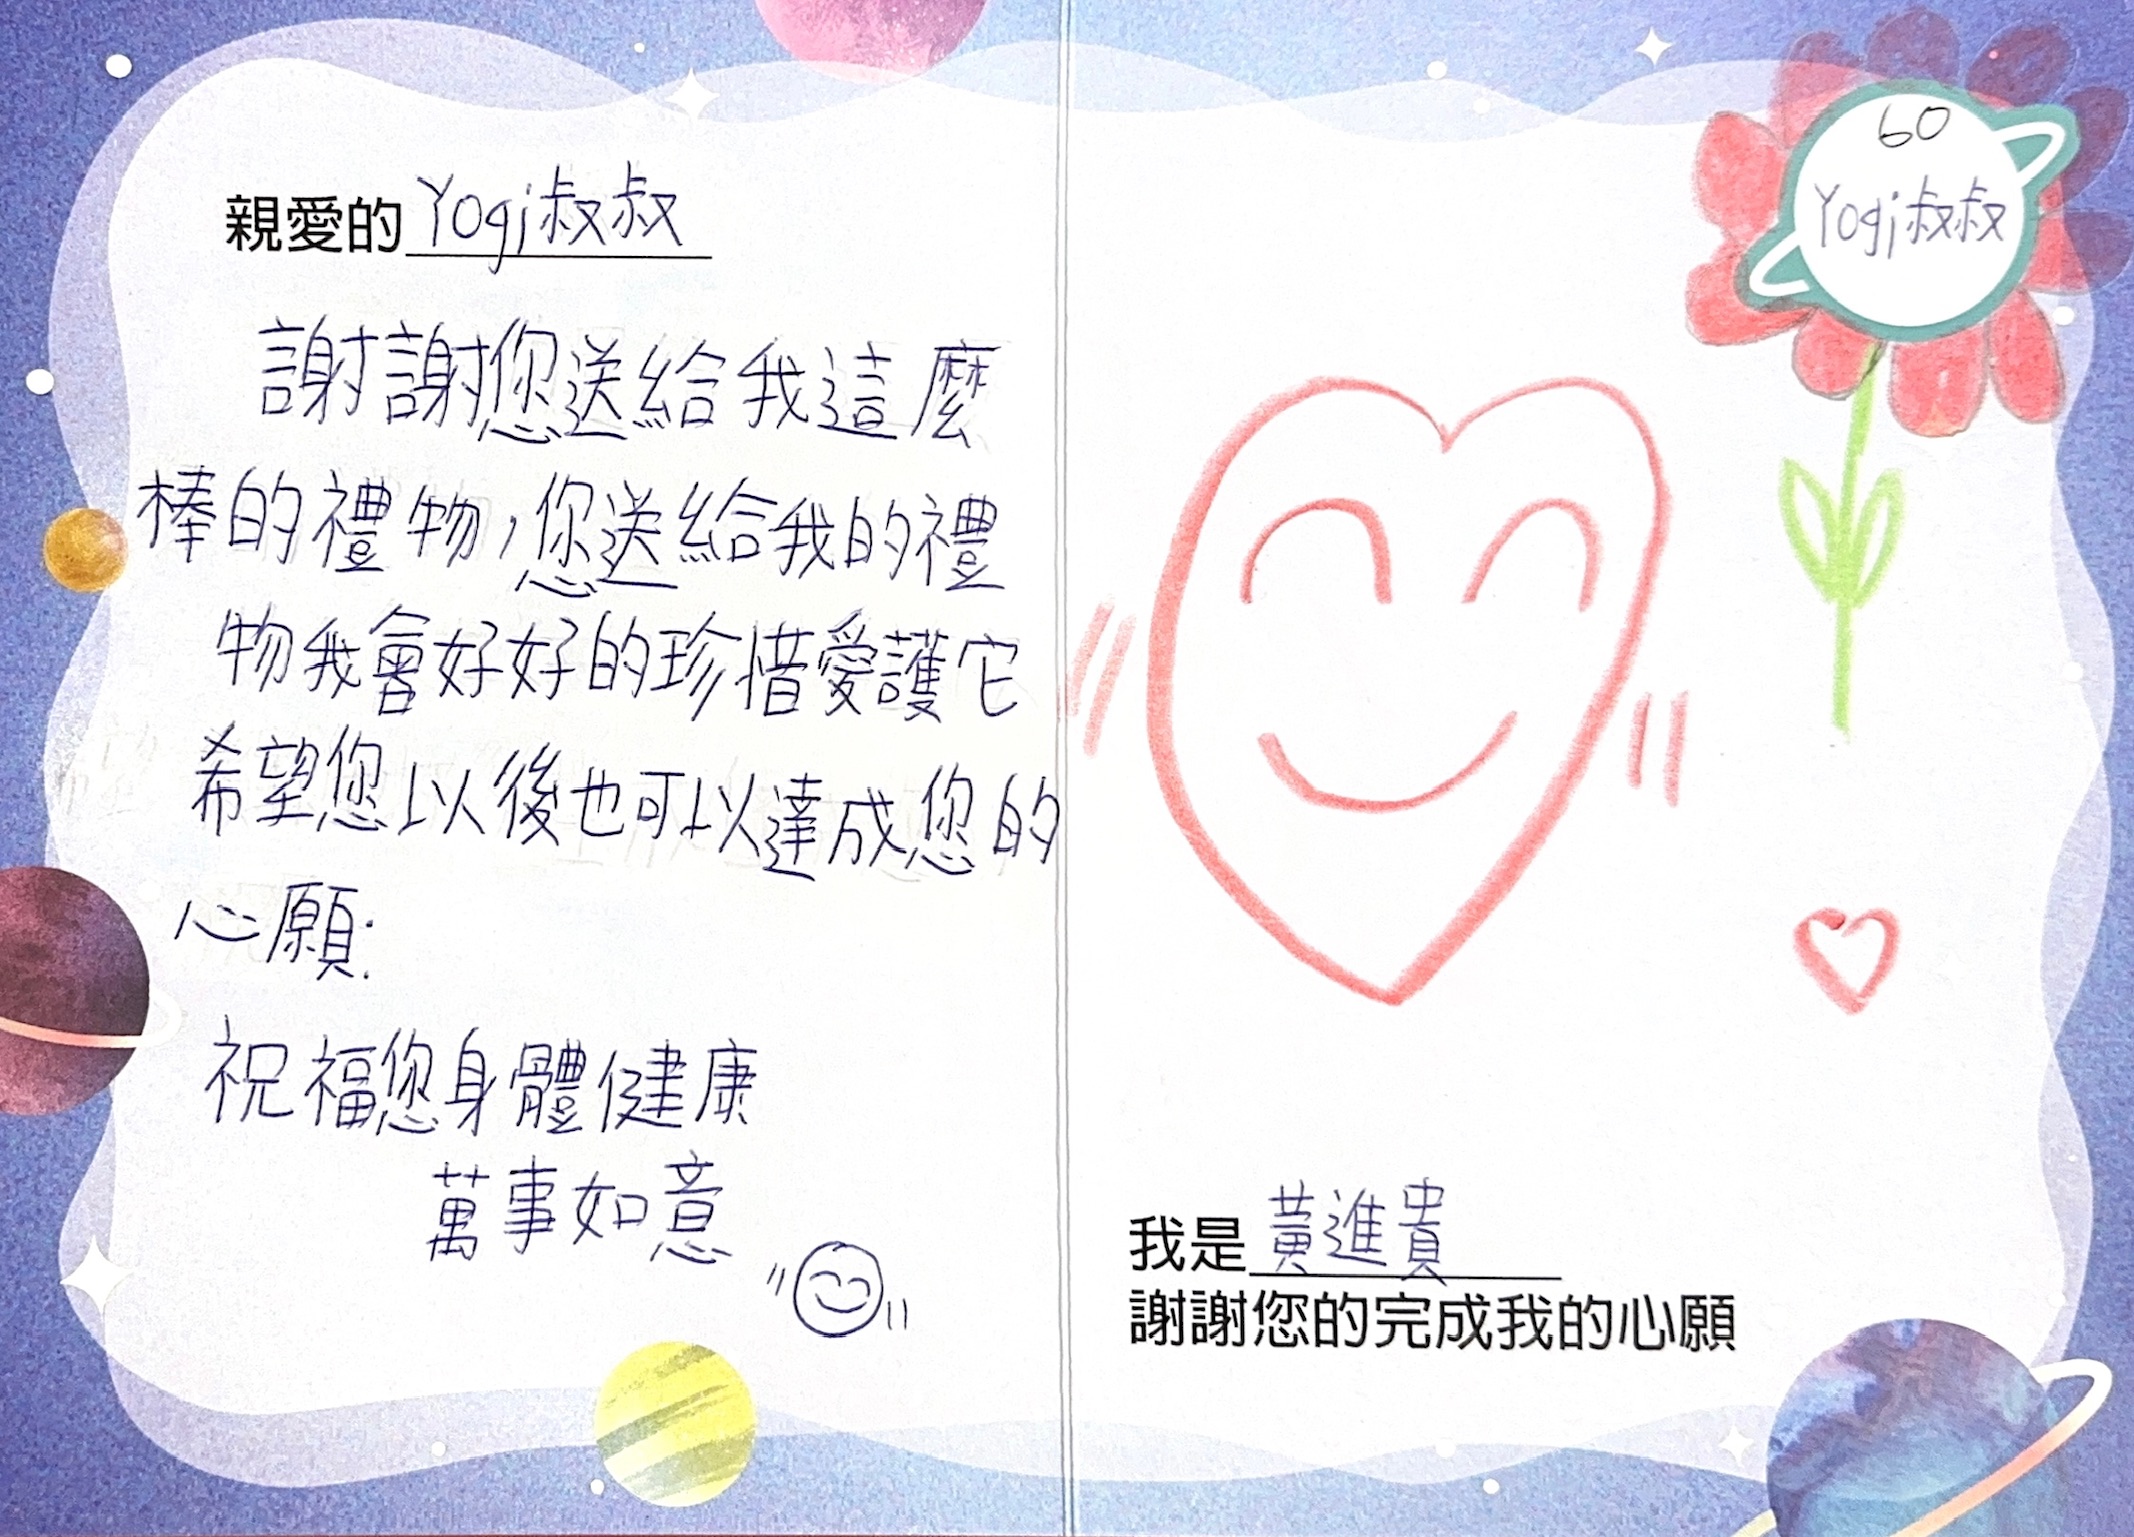 親愛的Yogi叔叔
謝謝您送給我這麼
棒的禮物,您送給我的禮
物我會好好的珍惜愛護它
希望您以後也可以達成您的
心願:
祝福您身體健康
萬事如意
60
Yogi叔叔
我是黃進貴
謝謝您的完成我的心願